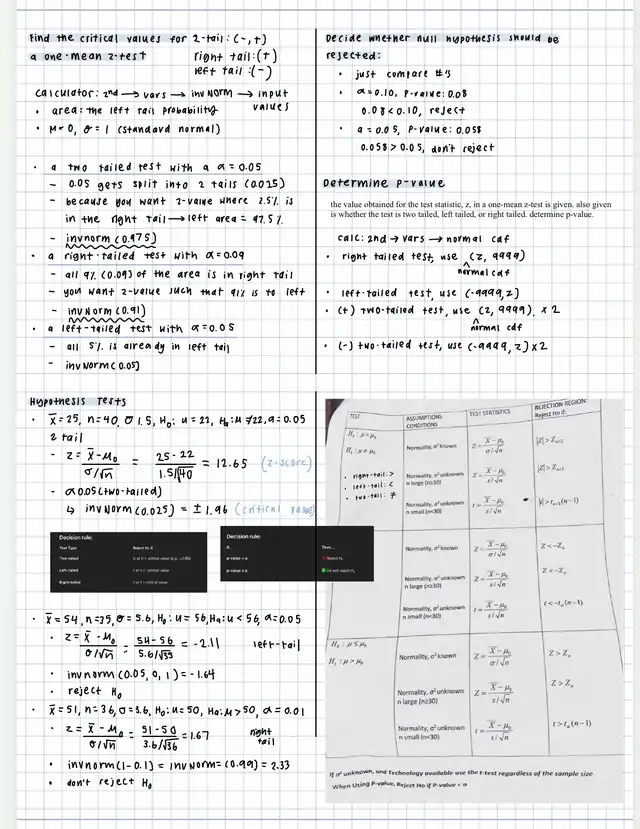 Find the critical values for 2-tail: (-,+)
a one-mean z-test right tail: (+)
left tail: (-)
calculator: 2nd → vars → invNORM → input values
• area: the left tail probability
• μ=0, σ=1 (standard normal)
• a two tailed test with a α = 0.05
- 0.05 gets split into 2 tails (0.025)
- because you want z-value where 2.5% is
in the right tail → left area = 97.5%
- invnorm (0.975)
• a right-tailed test with α=0.09
- all 9% (0.09) of the area is in right tail
- you want z-value such that 91% is to left
- invNorm (0.91)
• a left-tailed test with α=0.05
- all 5% is already in left tail
- invNorm (0.05)
Hypothesis Tests
• x̄=25, n=40, σ 1.5, H₀: u = 22, Hₐ: μ ≠22, α=0.05
2 tail
- z = x̄-μ₀ / σ/√n = 25-22 / 1.5/√40 = 12.65 (z-score)
- α 0.05 (two-tailed)
↳ invNorm (0.025) = ± 1.96 (critical value)
Decision rule:
Test Type Reject H₀ if
Two-tailed
Left-tailed
Right-tailed
Decision rule:
If... Then...
p-value < α Reject H₀
p-value > α Do not reject H₀
• x̄ = 54, n=35, σ = 5.6, H₀: u = 56, Hₐ: u < 56, α=0.05
• z = x̄-μ₀ / σ/√n = 54-56 / 5.6/√35 = -2.11 left-tail
• invnorm (0.05, 0, 1) = -1.64
• reject H₀
• x̄ = 51, n=36, σ=3.6, H₀: u = 50, Hₐ: μ > 50, α = 0.01
• z = x̄-μ₀ / σ/√n = 51-50 / 3.6/√36 = 1.67 right tail
• invnorm (1-0.1) = invNorm= (0.99) = 2.33
• don't reject H₀
Decide whether null hypothesis should be
rejected:
• just compare #'s
• α = 0.10, P-value: 0.08
0.08 < 0.10, reject
• a = 0.05, P-value: 0.058
0.058 > 0.05, don't reject
Determine P-value
the value obtained for the test statistic, z, in a one-mean z-test is given. also given
is whether the test is two tailed, left tailed, or right tailed. determine p-value.
calc: 2nd → vars → normal cdf
• right tailed test, use (z, 9999)
normal cdf
• left-tailed test, use (-9999, z)
• (+) two-tailed test, use (z, 9999). x 2
normal cdf
• (-) two-tailed test, use (-9999, z) x 2
TEST ASSUMPTIONS CONDITIONS TEST STATISTICS REJECTION REGION: Reject Ho if:
H₀: μ = μ₀
H₁: μ ≠ μ₀
Normality, σ² known Z = X̄-μ₀ / σ/√n |Z| > Zα/2
• right-tail: >
• left-tail: <
• two-tail: ≠
Normality, σ² unknown n large (n≥30) Z = X̄-μ₀ / s/√n |Z| > Zα/2
Normality, σ² unknown n small (n<30) t = X̄-μ₀ / s/√n |t| > tα/2(n-1)
Normality, σ² known Z = X̄-μ₀ / σ/√n Z < -Zα
Normality, σ² unknown n large (n≥30) Z = X̄-μ₀ / s/√n Z < -Zα
Normality, σ² unknown n small (n<30) t = X̄-μ₀ / s/√n t < -tα(n-1)
H₀: μ ≤ μ₀
H₁: μ > μ₀
Normality, σ² known Z = X̄-μ₀ / σ/√n Z > Zα
Normality, σ² unknown n large (n≥30) Z = X̄-μ₀ / s/√n Z > Zα
Normality, σ² unknown n small (n<30) t = X̄-μ₀ / s/√n t > tα(n-1)
If σ² unknown, and Technology available use the t-test regardless of the sample size
When Using P-value, Reject Ho if P-value < α